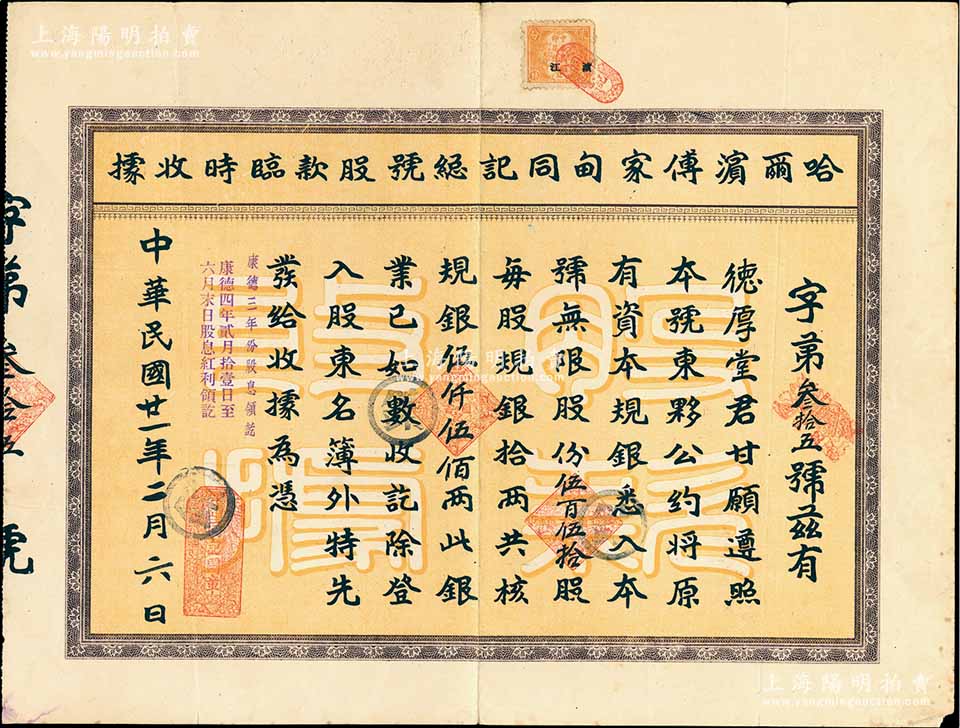 上海陽明拍賣
www.yangmingauction.com
濵江
哈爾濵傅家甸同記總號股款臨時收據
字第叁拾五號茲有
德厚堂君甘願遵照
本號東夥公約將原
有資本規銀悉入本
號無限股份伍百伍拾股
每股規銀拾两共核
規銀伍仟伍佰两此銀
業已如數收訖除登
入股東名簿外特先
發給收據為憑
康德三年份股息領訖
康德四年貳月拾壹日至
六月末日股息紅利領訖
中華民國廿一年二月六日
字第叁拾五號
上海陽明拍賣
www.yangmingauction.com
上海陽明拍賣
www.yangmingauction.com